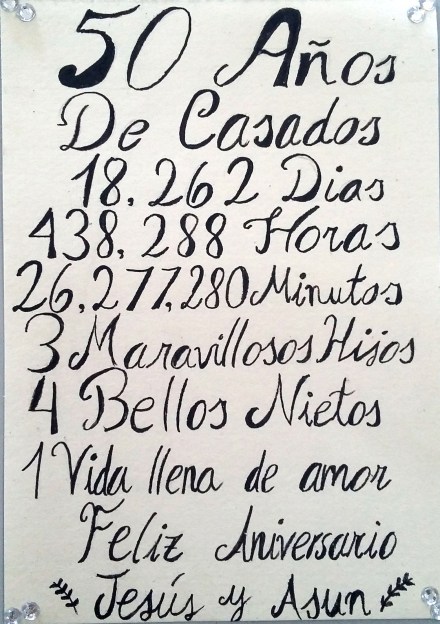 50 Años
De Casados
18.262 Dias
438.288 Horas
26.277.280 Minutos
3 Maravillosos Hijos
4 Bellos Nietos
1 Vida llena de amor
Feliz Aniversario
Jesús y Asun